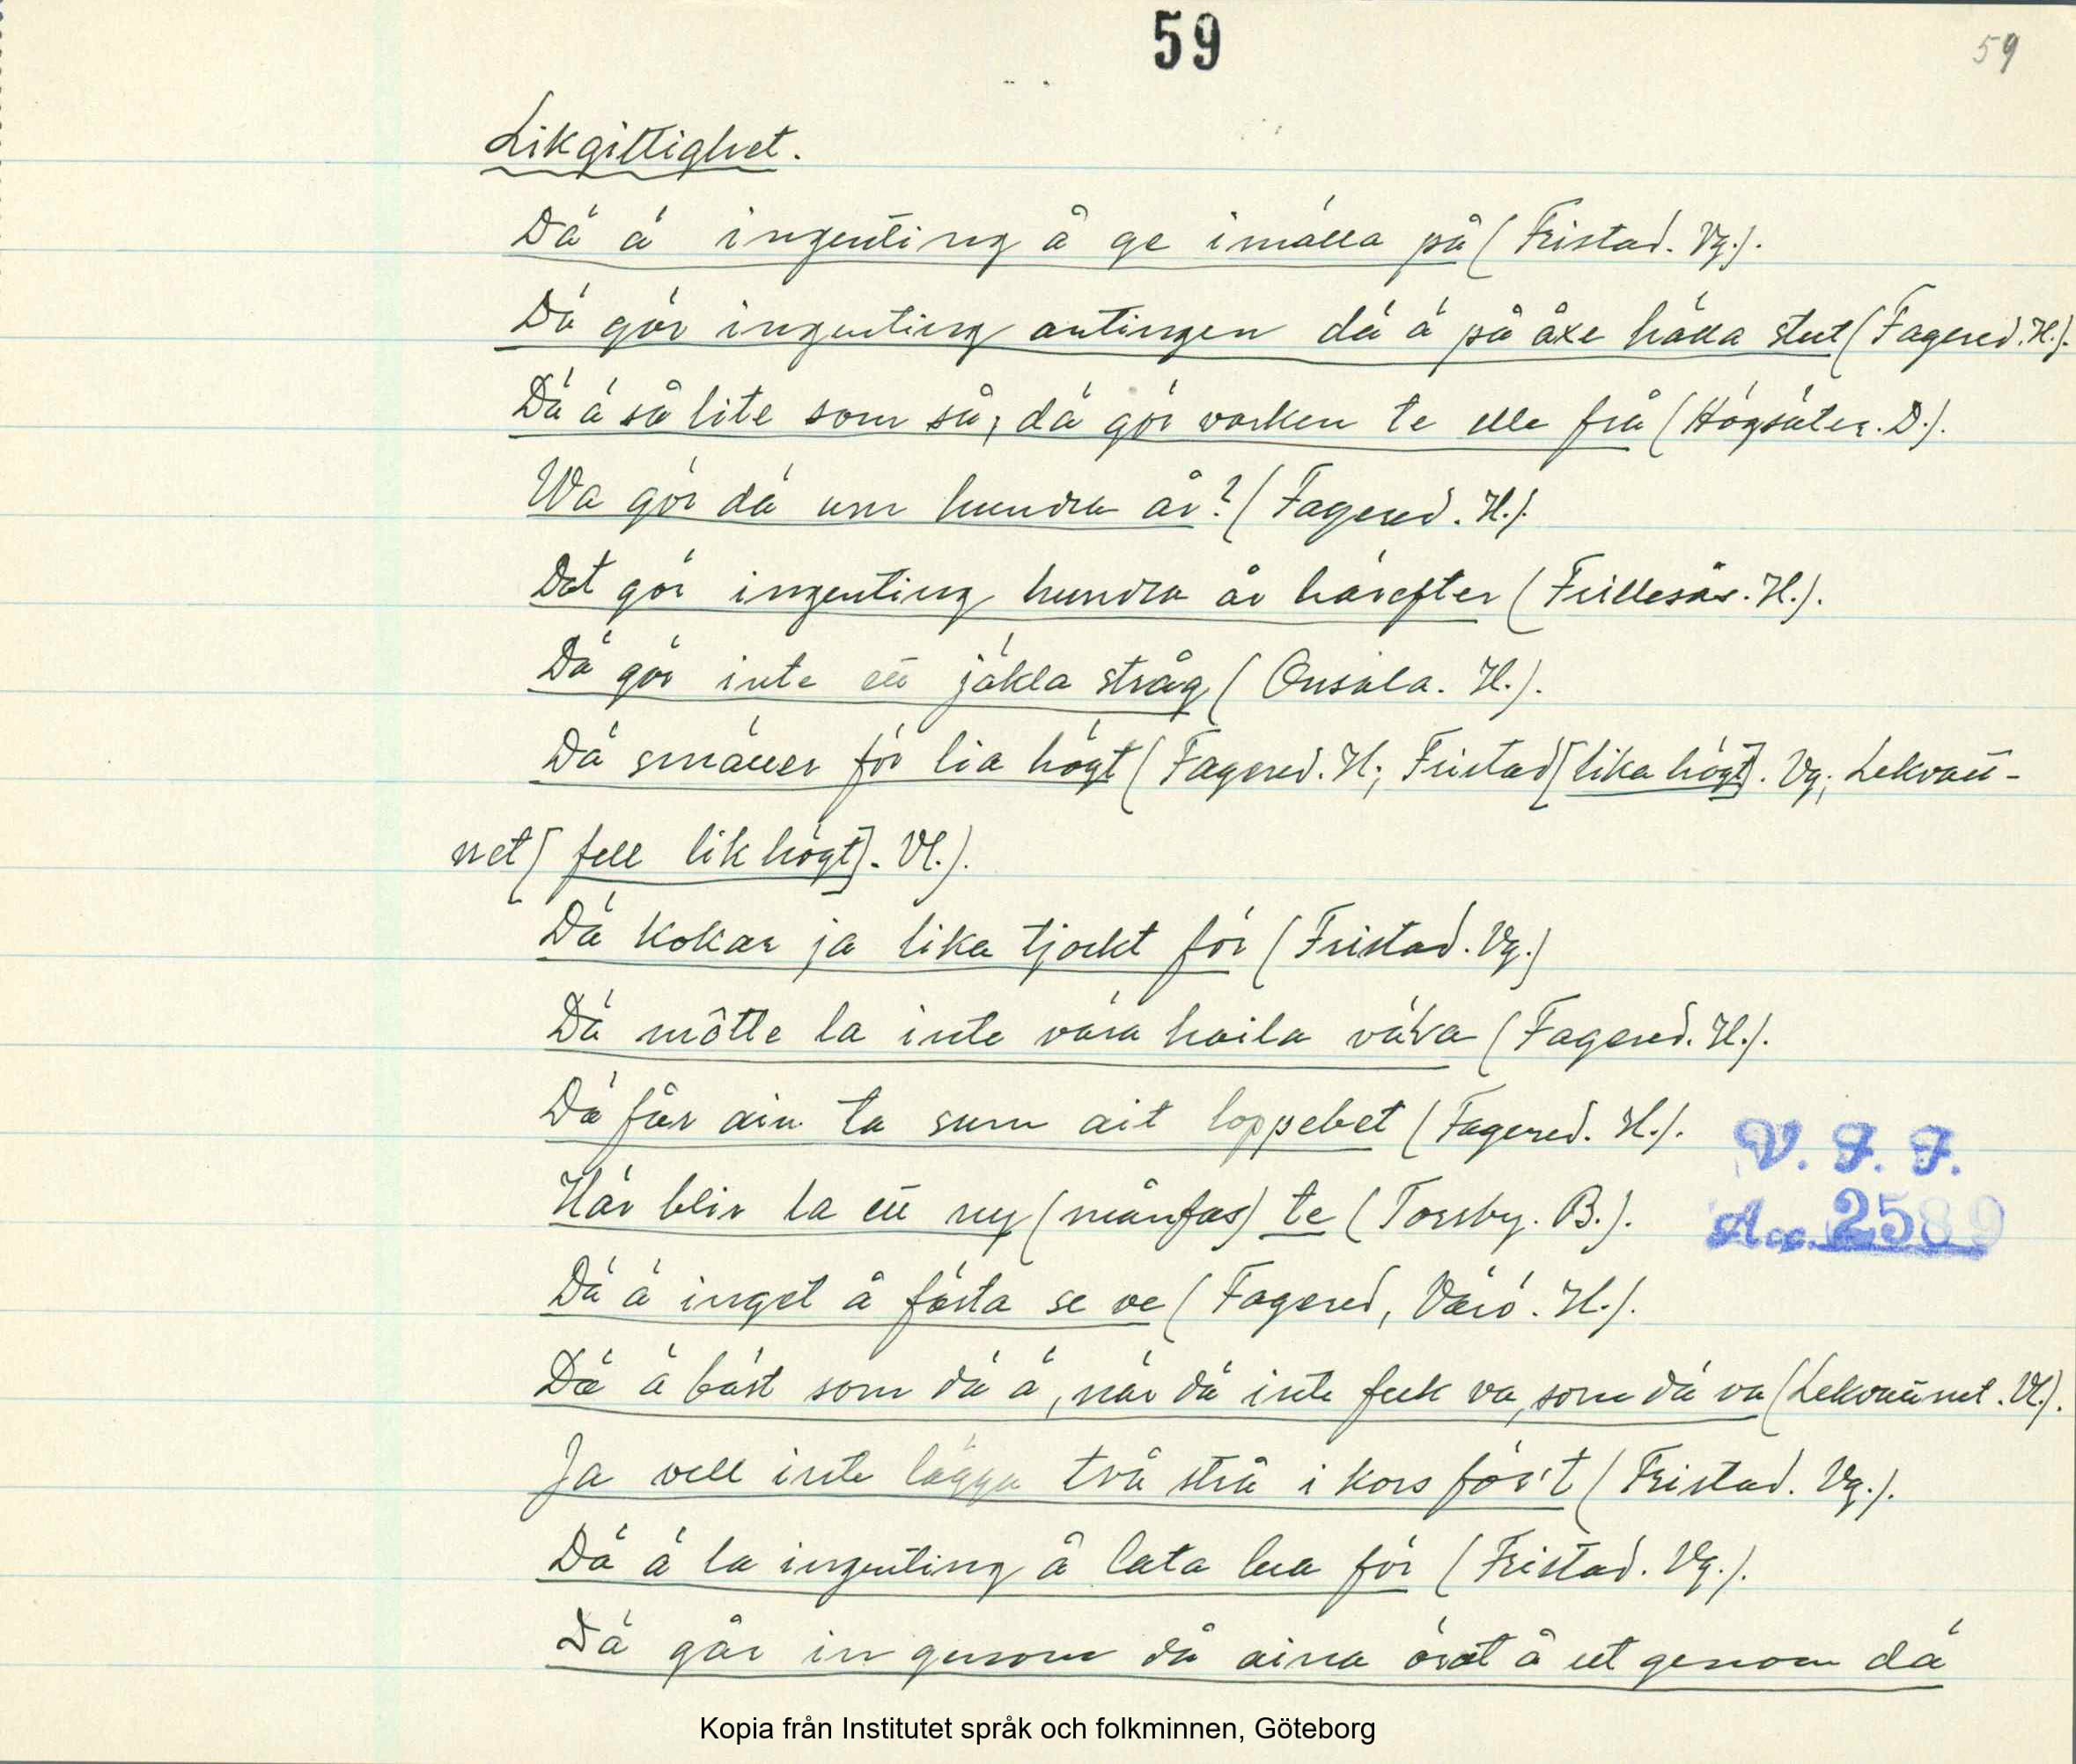 59
59
Likgiltighet.
Dä ä ingenting å ge imälla på (Fristad. Vg.).
Dä gör ingenting antingen dä ä på åxe hälla stut (Fagered. H.).
Dä ä så lite som så, dä gör varken te elle frå (Högsäter. D.).
Wa gör dä um hundra år? (Fagered. H.).
Det gör ingenting hundra år härefter (Frillesås. H.).
Dä gör inte en jäkla stråg (Onsala. H.).
Dä smäller för lia högt (Fagered. H; Fristad [lika högt]. Vg; Lekvatt-
net [fell lik högt]. Vl.).
Dä kokar ja lika tjockt för (Fristad. Vg.)
Dä måtte la inte vara haila (Fagered. H.).
Dä får ain ta sum ait loppebet (Fagered. H.).
V. F. F.
Här blir la en ny (månfas) te (Torsby. B.).
Acc. 2589
Dä ä inget å fästa se ve (Fagered, Värö. H.).
Dä ä bäst som dä ä, när dä inte fick va, som dä va (Lekvattnet. Vl.).
Ja vell inte lägga två strå i kors för't (Fristad. Vg.).
Dä ä la ingenting å lata lea för (Fristad. Vg.).
Dä går in genom dä aina örat å ut genom dä
Kopia från Institutet språk och folkminnen, Göteborg